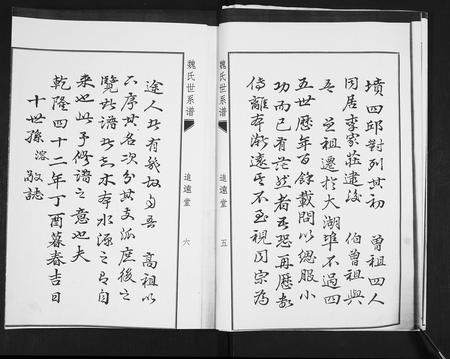 墳四邱對列其初 曾祖四人
因居李家莊逮後 伯曾祖與
吾 曾祖遷於大湖埠不過四
五世歷年百餘載間以緦服小
功而已有茫然者吾恐再歷数
傳離本漸遠其不至視同宗為
魏氏世系譜
追遠堂
五
途人者有幾故自吾 高祖以
下序其名次分其支派庶後之
覽斯譜者知木本水源之有自
來也此予修譜之意也夫
乾隆四十二年丁酉暮春吉日
十世孫 溶 敬誌
魏氏世系譜
追遠堂
六